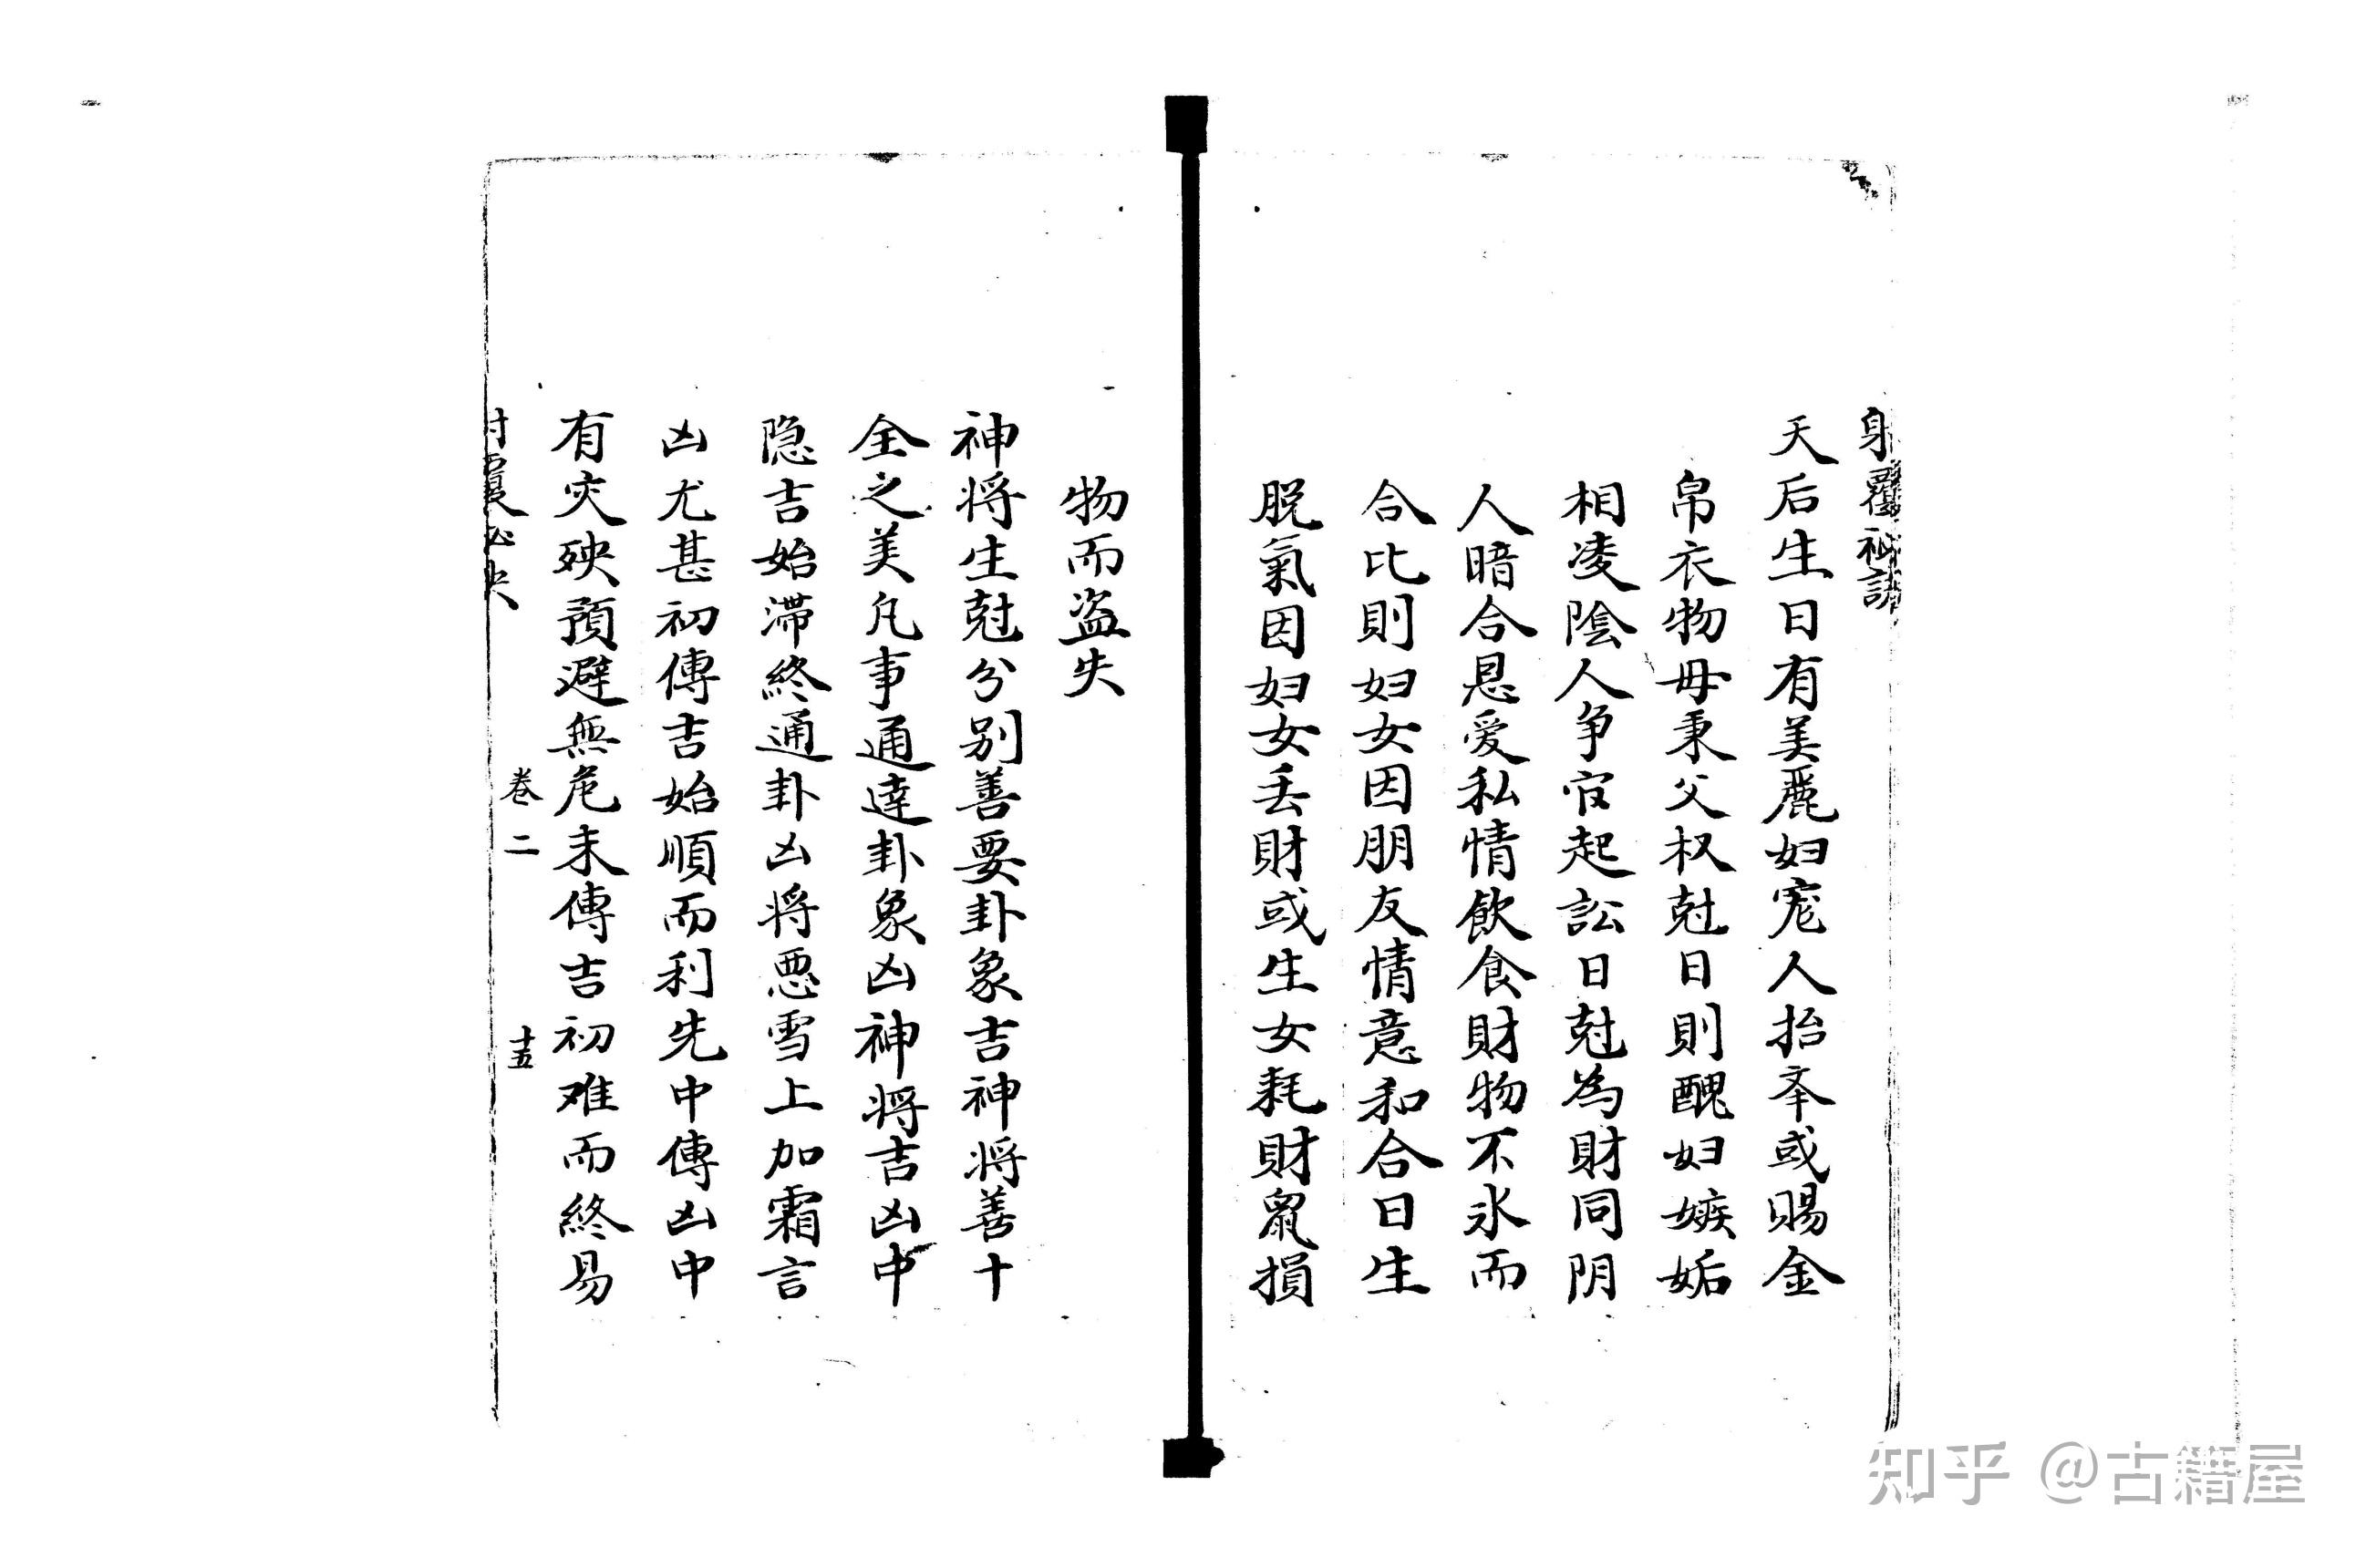 射覆秘訣
天后生日有美麗妇宠人抬夲或賜金
帛衣物毋秉父权尅日則醜妇嫉妬
相凌陰人争官起訟日尅為財同阴
人暗合恩爱私情飲食財物不氷而
合比則妇女因朋友情意和合日生
脱氣因妇女丢財或生女耗財鼠損
物而盗失
神将生尅分别善要卦象吉神将善十
全之美凡事通達卦象凶神将吉凶中
隐吉始滞終通卦凶将悪雪上加霜言
凶尤甚初傳吉始順而利先中傳凶中
有灾殃預避無危末傳吉初难而終易
卷二
十五
知乎 @古籍屋